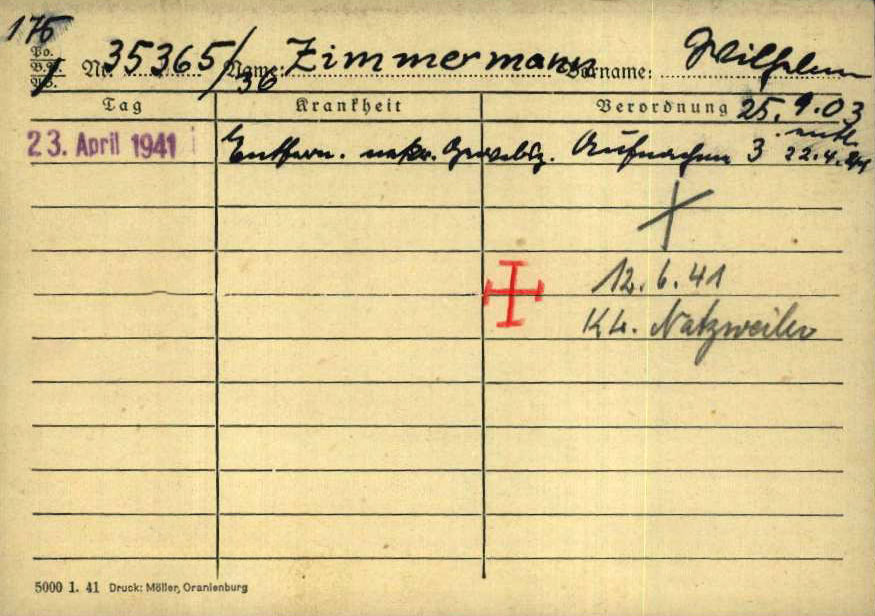 175
Po.
B.V.
Nr. 35365/36 Name: Zimmermann Vorname: Wilhelm
Tag Krankheit Verordnung 25.9.03
23. April 1941 Entfern. Aufnahme 3 22.4.41
12.6.41
KL. Natzweiler
5000 1. 41 Druck: Möller, Oranienburg